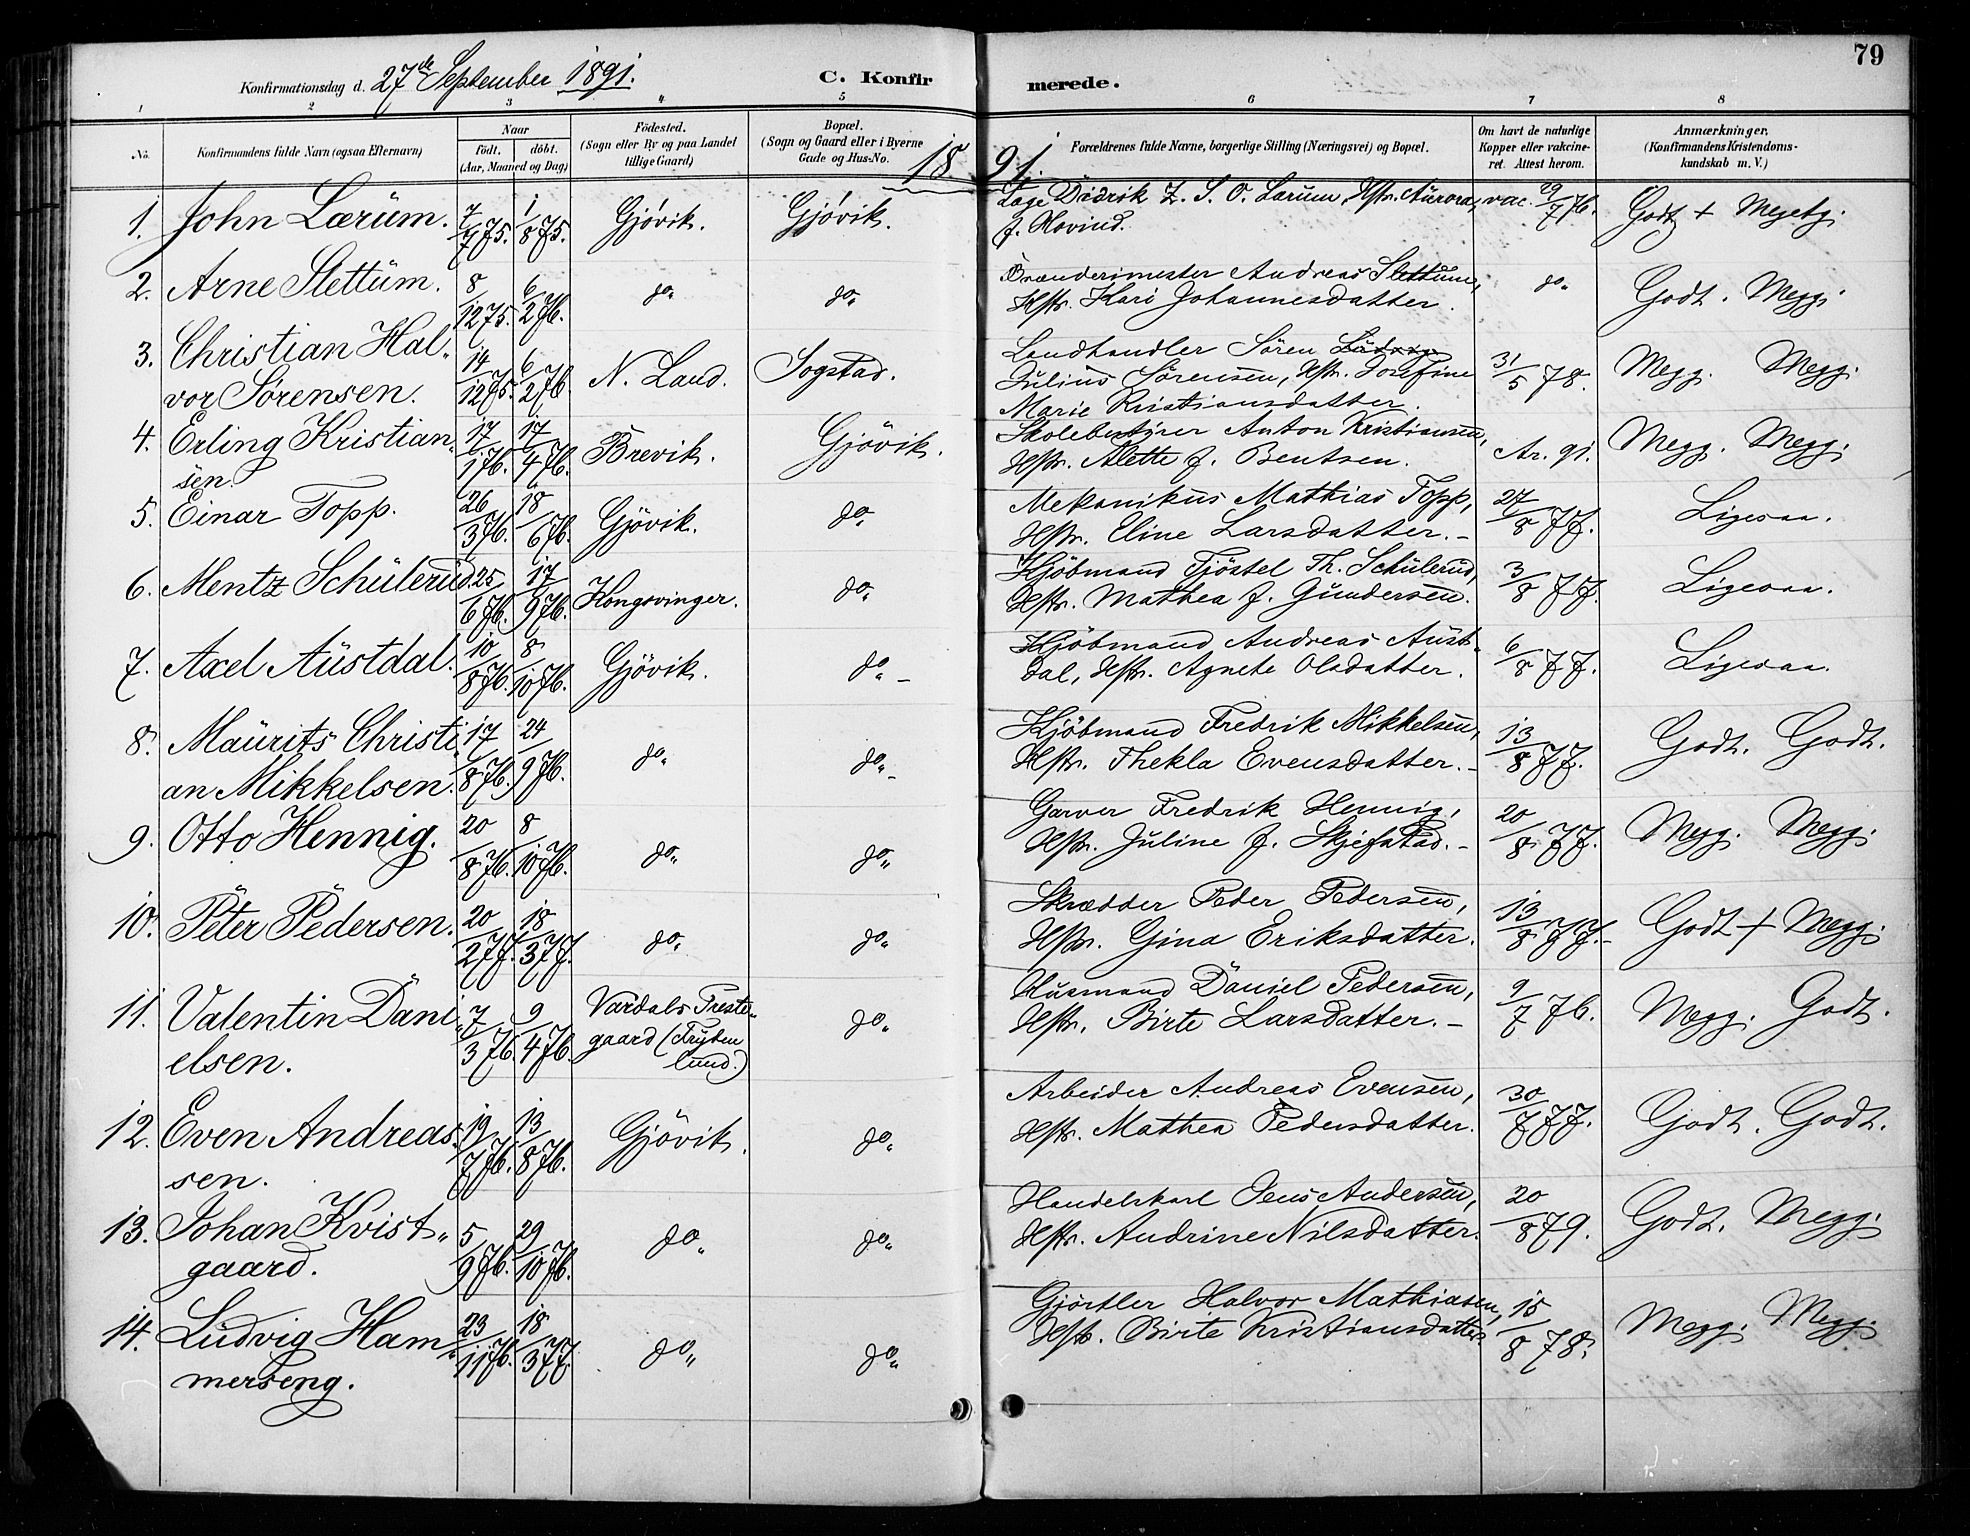 79
Konfirmationsdag d. 27de September 1891.
C. Konfirmerede.
1 2 3 4 5 6 7 8
No.
Konfirmandens fulde Navn (ogsaa Efternavn)
Naar
født. døbt.
(Aar, Maaned og Dag)
Fødested.
(Sogn eller By og paa Landet
tillige Gaard)
Bopæl.
(Sogn og Gaard eller i Byerne
Gade og Hus-No.
Forældrenes fulde Navne, borgerlige Stilling (Næringsvei) og Bopæl.
Om havt de naturlige
Kopper eller vakcine-
ret. Attest herom.
Anmærkninger.
(Konfirmandens Kristendoms-
kundskab m. V.)
1891.
1. John Lærum. 7/7 75. 1/8 75. Gjøvik. Gjøvik. Læge Didrik Z. S. O. Lærum, Hstr. Aurora, vac. 29/7 76. Godt + Megetg.
f. Hovind.
2. Arne Slettum. 8/12 75. 6/2 76. do. do. Brænderimester Andreas Slettum, do. Godt. Megg.
Hstr. Kari Johannesdatter.
3. Christian Hal- 14/12 75. 6/2 76. N. Land. Sogstad. Landhandler Søren 31/5 78. Megg. Megg.
vor Sørensen. Julius Sørensen, Hstr. Josefine
Marie Kristiansdatter.
4. Erling Kristian- 17/1 76. 17/4 76. Brevik. Gjövik. Skolebestyrer Anton Kristiansen, Ar. 91. Megg. Megg.
sen. Hstr. Alette f. Bentsen.
5. Einar Topp. 26/3 76. 18/6 76. Gjövik. do. Mekanikus Mathias Topp, 27/8 77. Ligesaa.
Hstr. Eline Larsdatter.-
6. Mentz Schülerud. 25/6 76. 17/9 76. Kongsvinger. do. Kjöbmand Tjöstel Th. Schülerud, 3/8 77. Ligesaa.
Hstr. Mathea f. Gundersen.
7. Axel Austdal. 10/8 76. 8/10 76. Gjövik. do.- Kjöbmand Andreas Aust- 6/8 77. Ligesaa.
dal, Hstr. Agnete Olsdatter.
8. Maurits Christi- 17/8 76. 24/9 76. do. do.- Kjöbmand Fredrik Mikkelsen, 13/8 77. Godt. Godt.
an Mikkelsen. Hstr. Thekla Evensdatter.-
9. Otto Hennig. 20/8 76. 8/10 76. do. do. Garver Fredrik Hennig, 20/8 77. Megg. Megg.
Hstr. Juline f. Skjefstad.-
10. Peter Pedersen. 20/2 77. 18/3 77. do. do. Skrædder Peder Pedersen, 13/8 77.- Godt + Megg.
Hstr. Gina Eriksdatter.
11. Valentin Dani- 7/3 76. 9/4 76. Vardals Preste- do. Husmand Daniel Pedersen, 9/7 76. Megg. Godt.
elsen. gaard (Fryden Hstr. Birte Larsdatter.-
lund.)
12. Even Andreas- 19/7 76. 13/8 76. Gjövik. do. Arbeider Andreas Evensen, 30/7 77. Godt. Godt.
sen. Hstr. Mathea Pedersdatter.
13. Johan Kvist- 5/9 76. 29/10 76. do. do. Handelskarl Jens Andersen, 20/8 79. Godt. Megg.
gaard. Hstr. Andrine Nilsdatter.
14. Ludvig Ham- 23/11 76. 18/3 77. do. do. Gjörtler Halvor Mathiasen, 15/8 78. Megg. Megg.
merseng. Hstr. Birte Kristiansdatter.